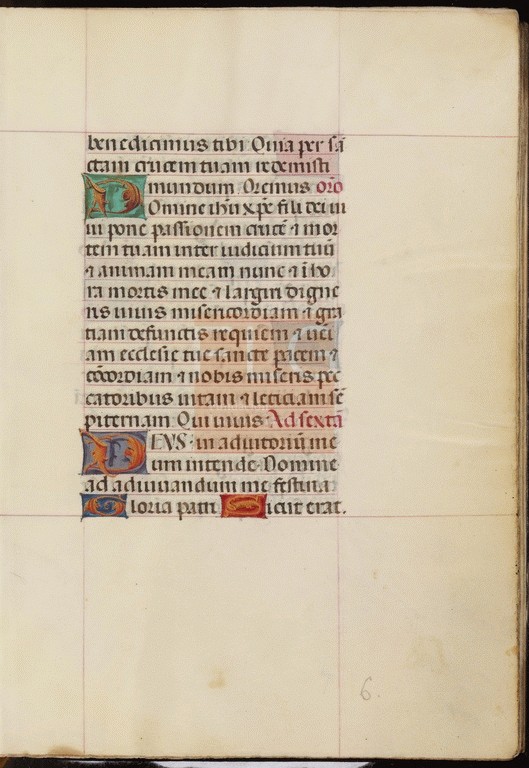 benedicimus tibi Quia per sā
ctam crucem tuam redemisti
mundum. Oremus orō
Domine ihū xpē fili dei ui
ui pone passionem crucē ⁊ mor
tem tuam inter iudicium tuū
⁊ animam meam nunc ⁊ ī ho
ra mortis mee ⁊ largiri digne
ris uiuis misericordiam ⁊ gra
tiam defunctis requiem ⁊ ueī
am ecclesie tue sancte pacem ⁊
cōcordiam ⁊ nobis miseris pec
catoribus uitam ⁊ leticiam sē
piternam Qui uiuis Ad sextā
DEUS in adiutoriū me
um intende Domine
ad adiuuandum me festina
Gloria patri Sicut erat.
6.